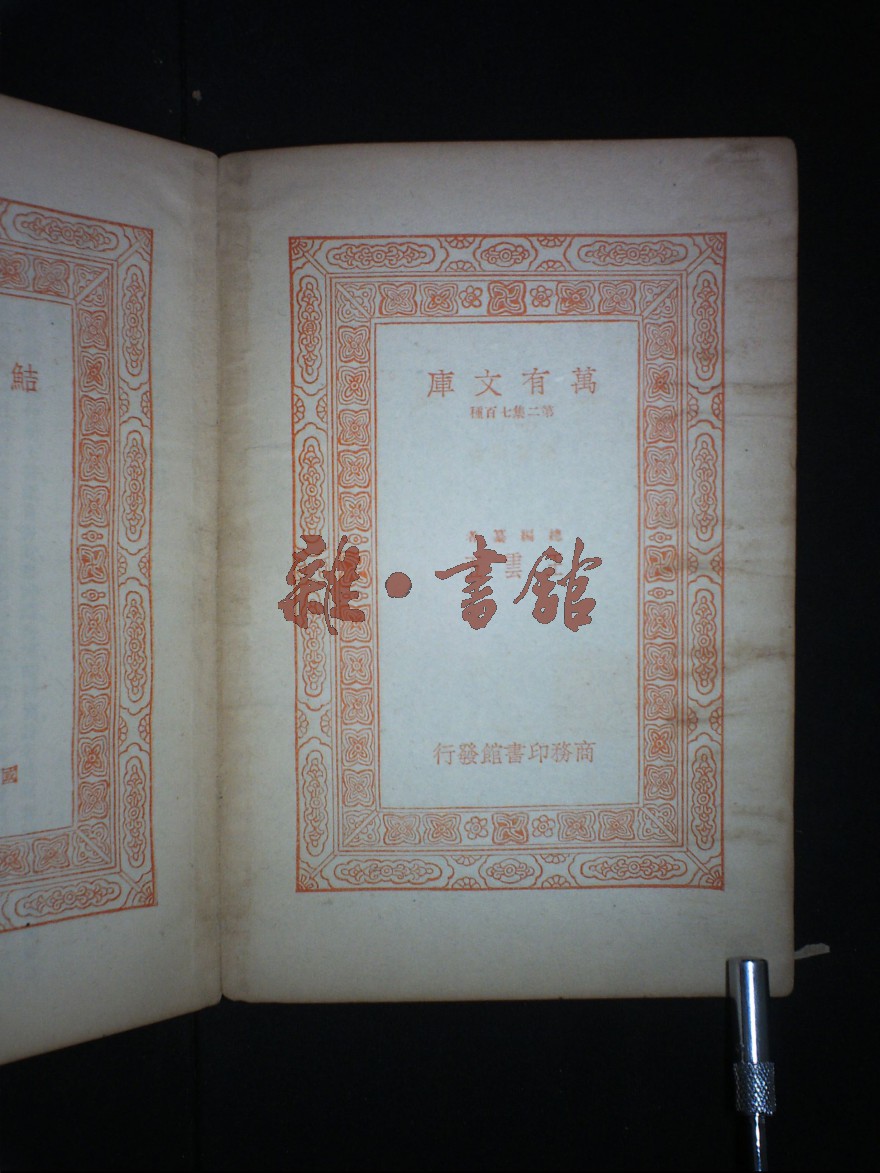 萬有文庫
第二集七百種
總編纂者
雲
商務印書館發行
雜·書館
鮚
國